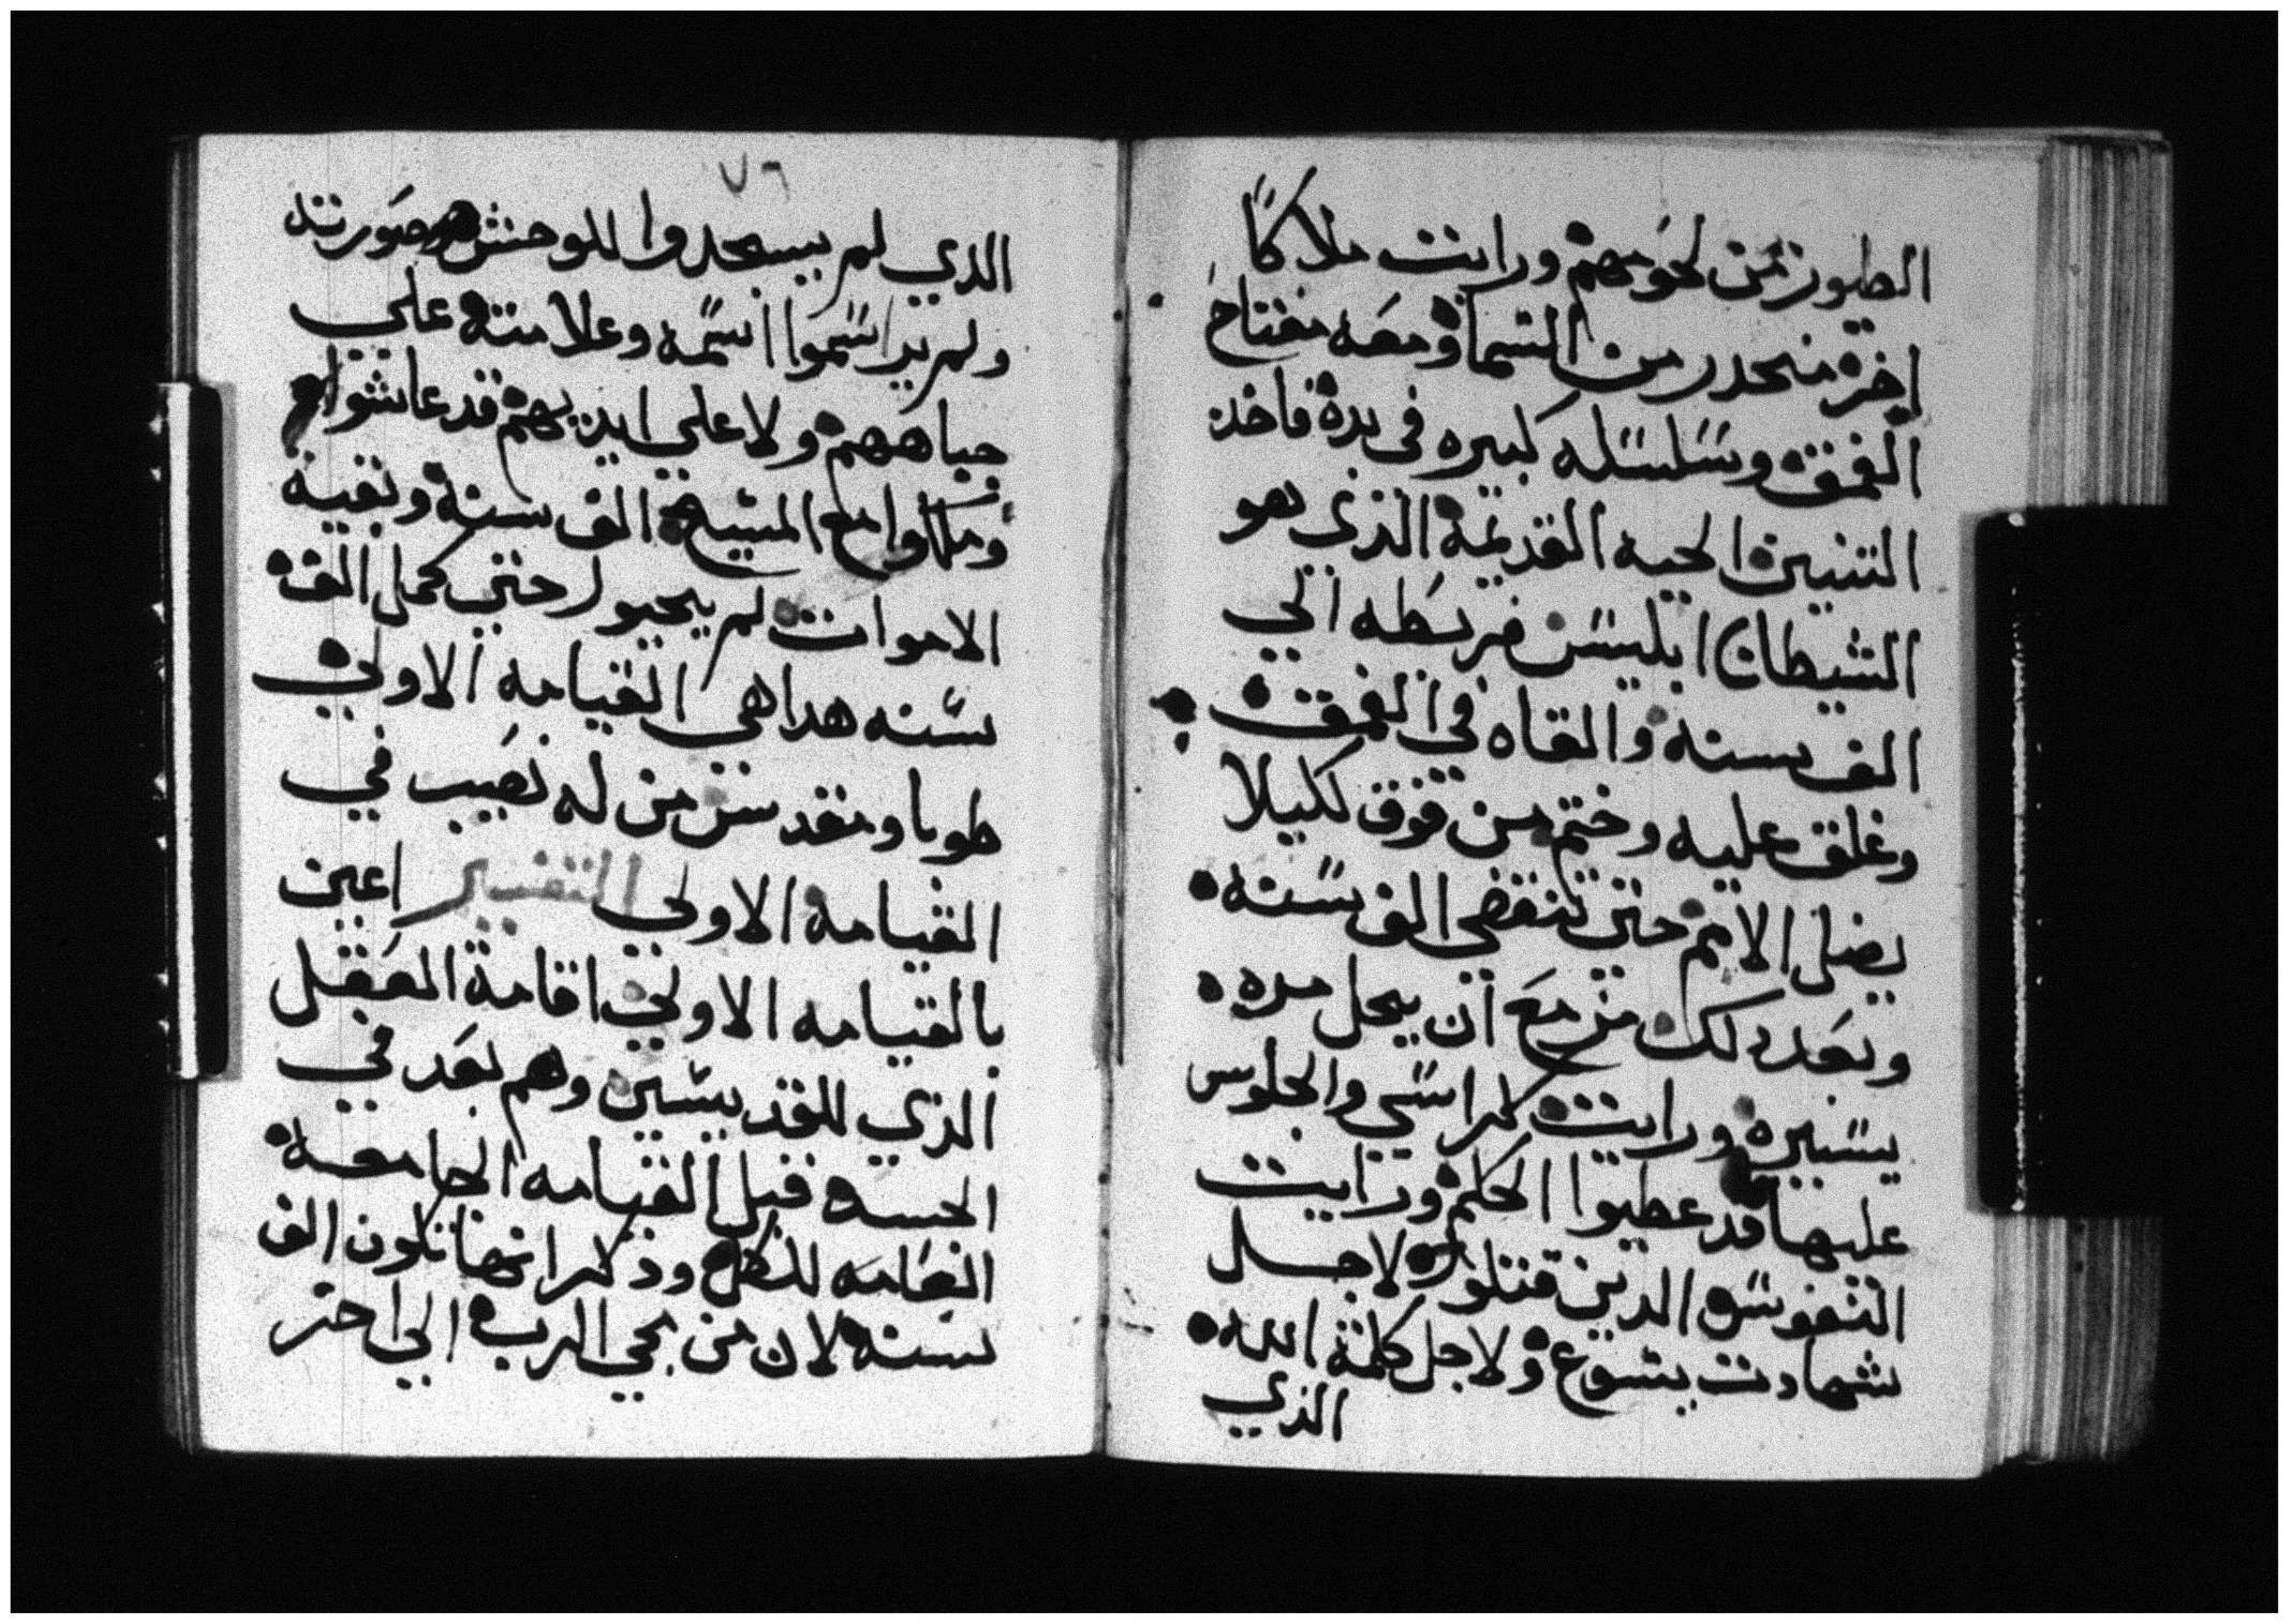 الطيور من لحومهم ورايت ملاكًا
اخر منحدر من السما ومعه مفتاح
الغمق وسلسله كبيره في يده فاخذ
التنين الحيه القديمة الذي هو
الشيطان ابليس فربطه الي
الف سنه والقاه في الغمق
وغلق عليه وختم من فوق لكيلا
يضل الامم حتي تنقضي الف سنه
وبعد دلك مزمع ان يحل مده
يسيره ورايت كراسي والجلوس
عليها قد عطيوا الحكم ورايت
النفوس الدين قتلوا لاجل
شهادت يسوع ولاجل كلمة الله
الذي
٧٦
الذي لم يسجدوا للوحش وصورته
ولم يراسموا اسمه وعلامته علي
جباههم ولا علي ايديهم قد عاشوا
وملكوا مع المسيح الف سنة وبقية
الاموات لم يحيوا حتي كمل الف
سنه هدا هي القيامه الاولي
طوبا ومقدس من له نصيب في
القيامه الاولي التفسير اعين
بالقيامه الاولي اقامة العقل
الذي للقديسين وهم بعد في
الجسد قبل القيامه الجامعه
العامه للكل وذكر انها تكون الف
سنه لان من مجي الرب الي اخر